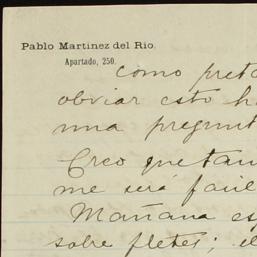 Pablo Martinez del Rio.
Apartado, 250.
como preto
obviar esto h
una pregunt
Creo que tam
me será fácil
Mañana es
sobre fletes; el